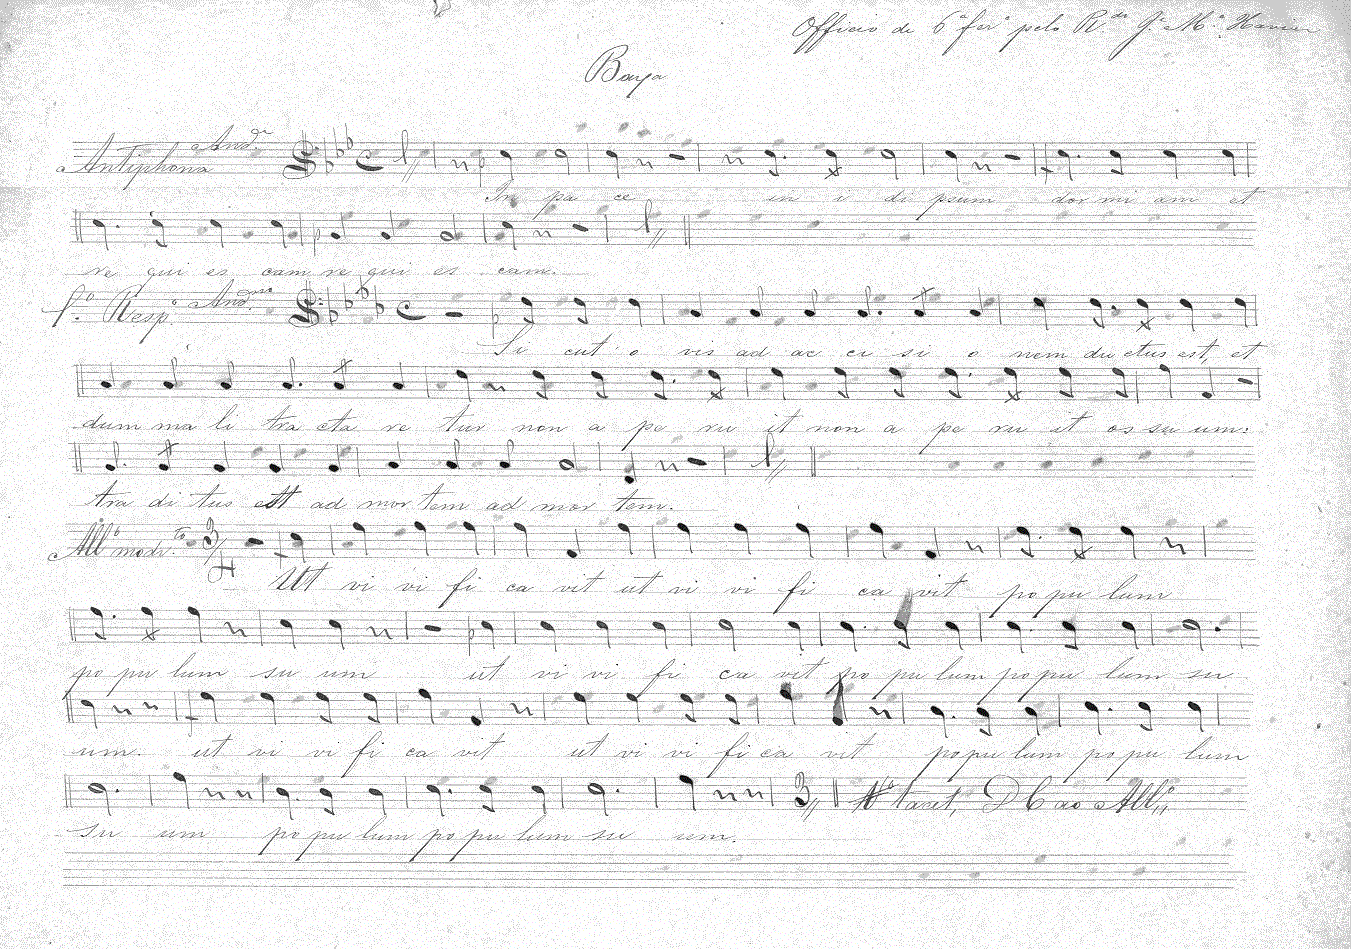 Officio de 6ª ferª pelo Rdo Je Ma Xavier
Baxa
Antiphona Andte
In pa ce in i di psum dor mi am et
re qui es cam re qui es cam.
1º Resp. Andno
Si cut o vis ad oc ci si o nem ductus est, et
dum ma le tra cta re tur non a pe ru it non a pe ru it os su um:
tra di tus est ad mor tem ad mor tem.
Allº modrto 3/4
Ut vi vi fi ca vit ut vi vi fi ca vit po pu lum
po pu lum su um ut vi vi fi ca vit po pu lum po pu lum su
um. ut vi vi fi ca vit ut vi vi fi ca vit po pu lum po pu lum
su um po pu lum po pu lum su um.
3 Vº tacet, DC ao Allº